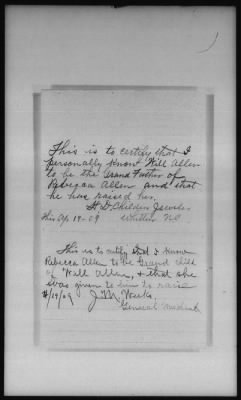 This is to certify that I
personally know Will Allen
to be the Grand Father of
Rebecca Allen and that
he has raised her.
H. D. Childers
This Ap. 19-09 Whittier NC
This is to certify that I know
Rebecca Allen to be Grand child
of Will Allen, & that she
was given to him to raise
4/19/09 J. M. Weeks.
General Merchant